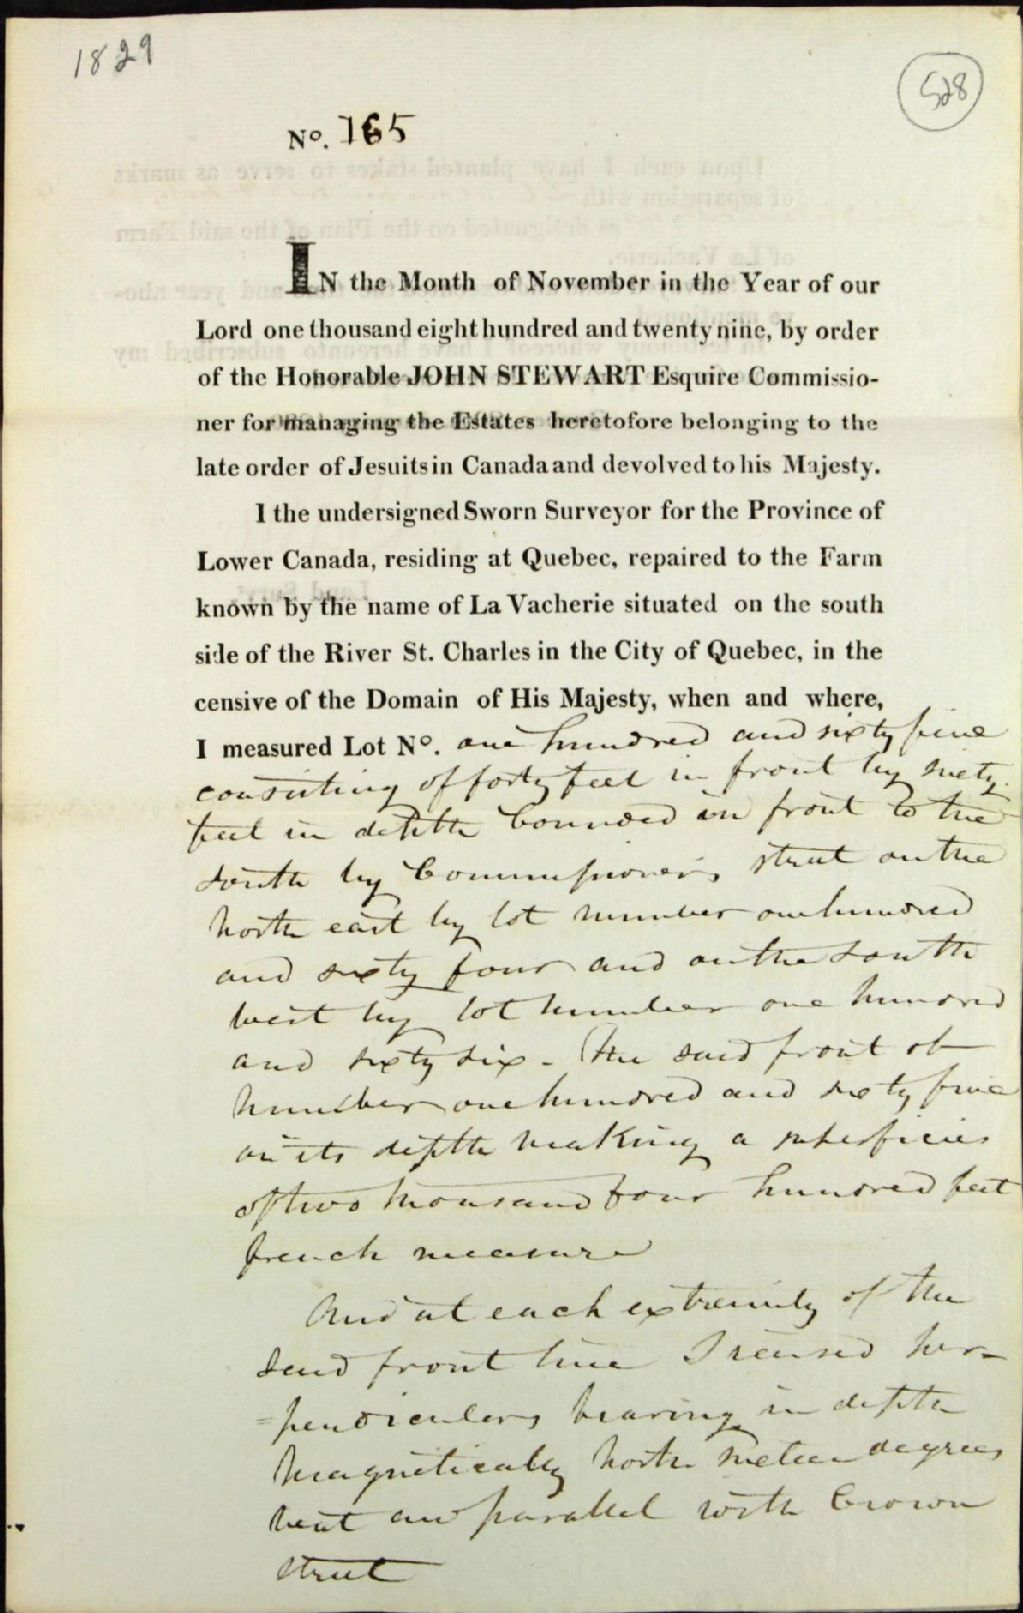 1829
528
No. 165
IN the Month of November in the Year of our
Lord one thousand eight hundred and twenty nine, by order
of the Honorable JOHN STEWART Esquire Commissio-
ner for managing the Estates heretofore belonging to the
late order of Jesuits in Canada and devolved to his Majesty.
I the undersigned Sworn Surveyor for the Province of
Lower Canada, residing at Quebec, repaired to the Farm
known by the name of La Vacherie situated on the south
side of the River St. Charles in the City of Quebec, in the
censive of the Domain of His Majesty, when and where,
I measured Lot No. one hundred and sixty five
consisting of forty feet in front by sixty
feet in depth bounded in front to the
south by Commissioners street on the
north east by lot number one hundred
and sixty four and on the south
west by lot number one hundred
and sixty six - The said front of
number one hundred and sixty five
on its depth making a superficies
of two thousand four hundred feet
french measure
And at each extremity of the
said front line I raised per-
=pendiculars bearing in depth
magnetically north nineteen degrees
west and parallel with Crown
street